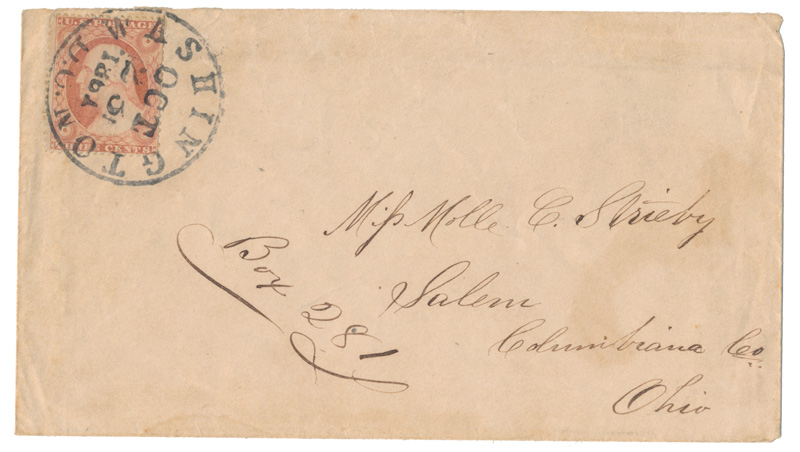 U.S. POSTAGE
THREE CENTS
WASHINGTON D.C.
OCT
5
Miss Molle C. Strieby
Box 281
Salem
Columbiana Co.
Ohio